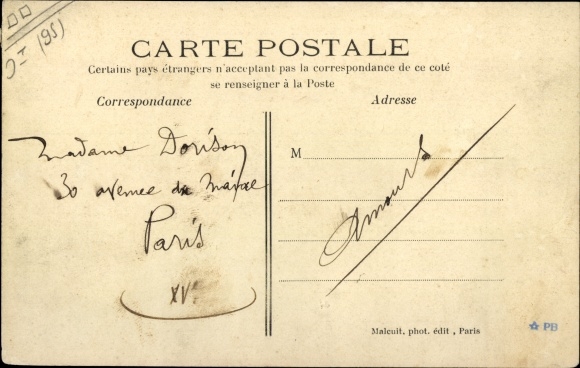 (95)
CARTE POSTALE
Certains pays étrangers n'acceptant pas la correspondance de ce coté
se renseigner à la Poste
Correspondance
Adresse
Madame Dorison
30 avenue du
Paris
XV.
M
Amours
Malcuit, phot. édit, Paris
PB